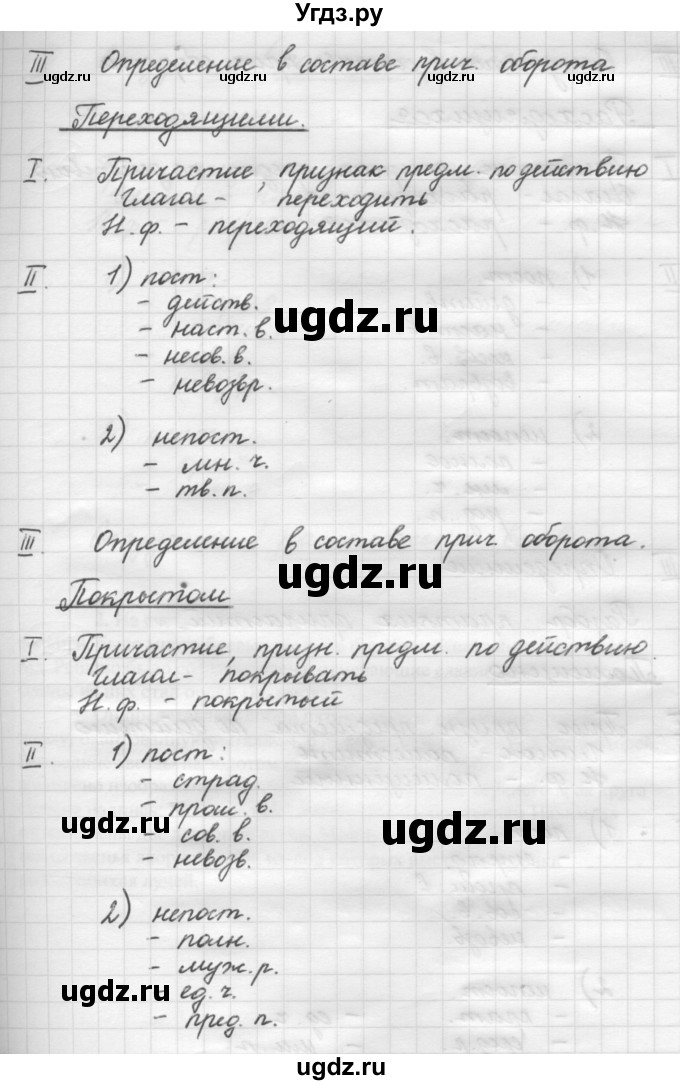 Угдз.ру
III Определение в составе прич. оборота
Переходящими.
I. Причастие, признак предм. по действию
Глагол - переходить
Н.ф. - переходящий.
II. 1) пост:
- действ.
- наст. в.
- несов. в.
- невозвр.
2) непост.
- мн. ч.
- тв. п.
III Определение в составе прич. оборота.
Покрытом
I. Причастие, призн. предм. по действию.
Глагол - покрывать
Н.ф. - покрытый
II. 1) пост:
- страд.
- прош. в.
- сов. в.
- невозв.
2) непост.
- полн.
- муж. р.
- ед. ч.
- пред. п.
ugdz.ru
ugdz.ru
ugdz.ru
ugdz.ru
ugdz.ru
ugdz.ru
ugdz.ru
ugdz.ru
ugdz.ru
ugdz.ru